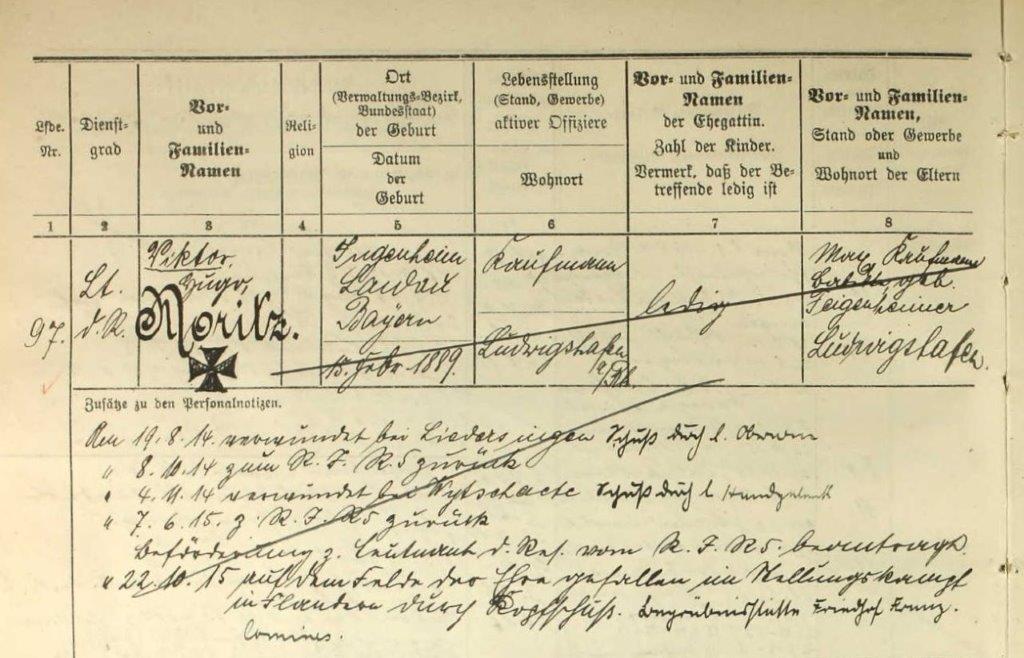 Lfde. Nr.
Dienst-
grad
Vor-
und
Familien-
Namen
Reli-
gion
Ort
(Verwaltungs-Bezirk,
Bundesstaat)
der Geburt
Datum
der
Geburt
Lebensstellung
(Stand, Gewerbe)
aktiver Offiziere
Wohnort
Vor- und Familien-
Namen
der Ehegattin.
Zahl der Kinder.
Vermerk, daß der Be-
treffende ledig ist
Vor- und Familien-
Namen,
Stand oder Gewerbe
und
Wohnort der Eltern
1 2 3 4 5 6 7 8
97.
Lt.
d. R.
Viktor,
Hugo,
Moritz.
Ingenheim
Landau
Bayern
13. Febr. 1889.
Kaufmann
Ludwigshafen
a/Rh.
ledig
Max, Kaufmann
geb.
Feigenheimer
Ludwigshafen.
Zusätze zu den Personalnotizen.
Am 19.8.14. verwundet bei Liedersingen Schuß dch l. Oberarm
" 8.10.14 zum R. I. R. 5 zurück
" 4.11.14 verwundet bei Wytschaete Schuß dch l Handgelenk
" 7.6.15. z. R. I. R 5 zurück
Beförderung z. Leutnant d. Res. vom R. I. R 5. beantragt.
" 22.10.15 auf dem Felde der Ehre gefallen im Stellungskampf
in Flandern durch Kopfschuß. Begräbnisstätte Friedhof Franz.
Comines.